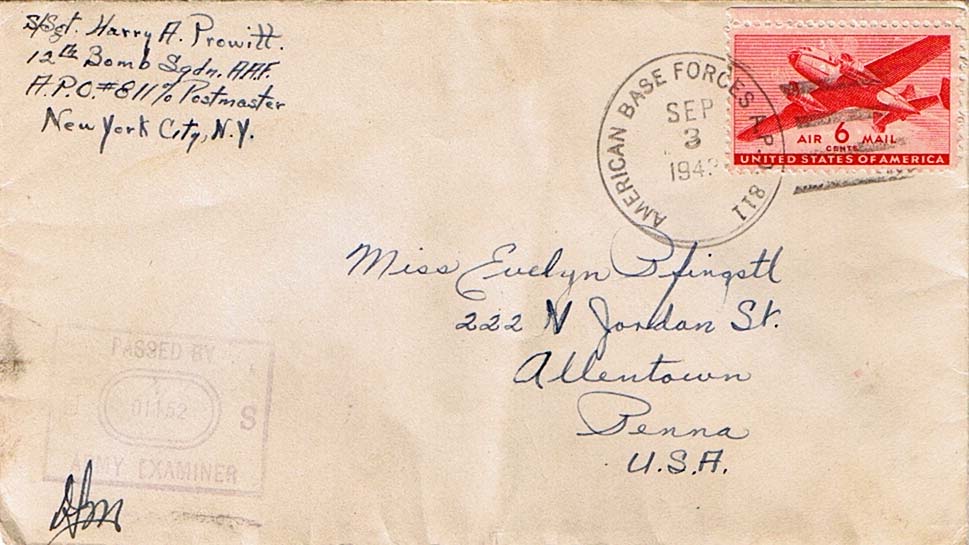 S/Sgt. Harry A. Prowitt.
12th Bomb Sqdn. AAF.
A.P.O. #811 % Postmaster
New York City, N.Y.
AMERICAN BASE FORCES A.P.O. 811
SEP
3
AIR 6 MAIL
CENTS
UNITED STATES OF AMERICA
Miss Evelyn Pfingstl
222 N Jordan St.
Allentown
Penna
U.S.A.
PASSED BY
S
ARMY EXAMINER